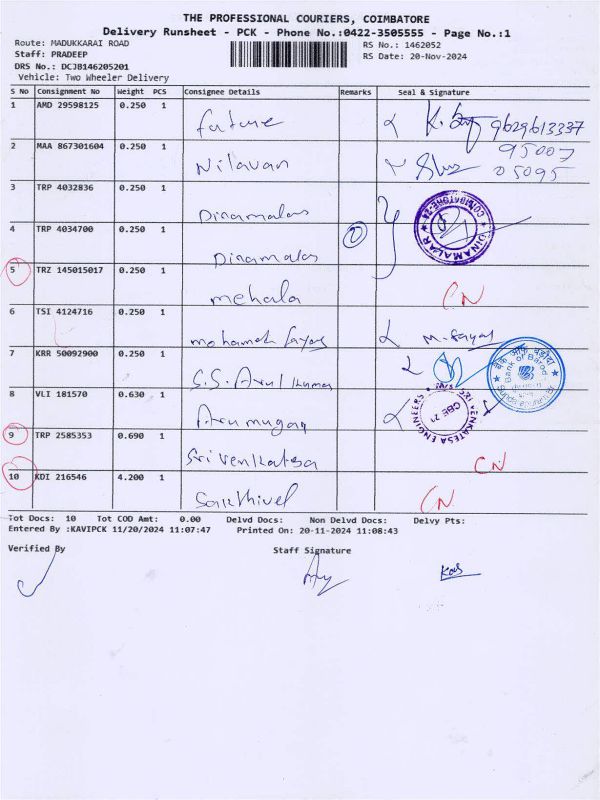 THE PROFESSIONAL COURIERS, COIMBATORE
Delivery Runsheet - PCK - Phone No.:0422-3505555 - Page No.:1
Route: MADUKKARAI ROAD
Staff: PRADEEP
RS No.: 1462052
DRS No.: DCJB146205201
RS Date: 20-Nov-2024
Vehicle: Two Wheeler Delivery
S No Consignment No Weight PCS Consignee Details Remarks Seal & Signature
1 AMD 29598125 0.250 1 future 9629613337
2 MAA 867301604 0.250 1 Nilavan 95007 05095
3 TRP 4032836 0.250 1 Dinamalar
4 TRP 4034700 0.250 1 Dinamalar 2
DINAMALAR
COIMBATORE-24
5 TRZ 145015017 0.250 1 mehala CN
6 TSI 4124716 0.250 1 mohamed fayas M. fayas
7 KRR 50092900 0.250 1 S.S. Arul Kumar
Bank of Baroda
8 VLI 181570 0.630 1 Arumugam
M/S. SRI VENKATESA ENGINEERS
CBE 21
9 TRP 2585353 0.690 1 Sri Venkatesa CN
10 KDI 216546 4.200 1 Sakthivel CN
Tot Docs: 10 Tot COD Amt: 0.00 Delvd Docs: Non Delvd Docs: Delvy Pts:
Entered By :KAVIPCK 11/20/2024 11:07:47 Printed On: 20-11-2024 11:08:43
Verified By Staff Signature